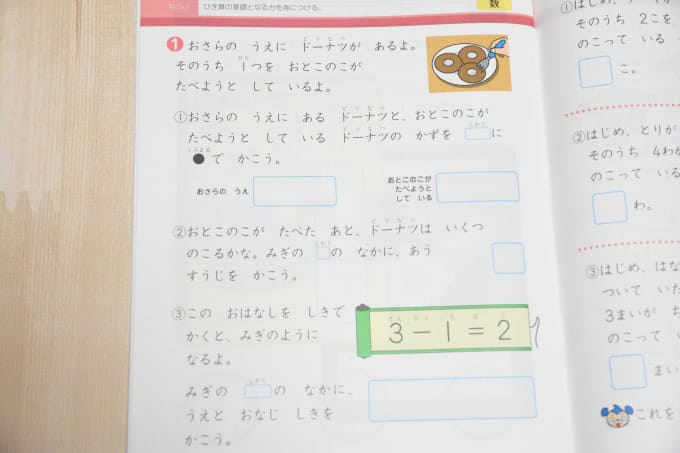 ねらい ひき算の基礎となる力を身につける。
数
1 おさらの うえに ドーナツが あるよ。
そのうち 1つを おとこのこが
たべようと して いるよ。
①おさらの うえに ある ドーナツと、おとこのこが
たべようと して いる ドーナツの かずを □に
●で かこう。
おさらの うえ
おとこのこが
たべようと
して いる
②おとこのこが たべた あと、ドーナツは いくつ
のこるかな。みぎの □の なかに、あう
すうじを かこう。
③この おはなしを しきで
かくと、みぎのように
なるよ。
3−1=2
みぎの □の なかに、
うえと おなじ しきを
かこう。
①はじめ、
そのうち 2こを
のこって いる
こ。
②はじめ、とりが
そのうち 4わが
のこって いる
わ。
③はじめ、はな
ついて いた
3まいが
のこって い
まい
これを